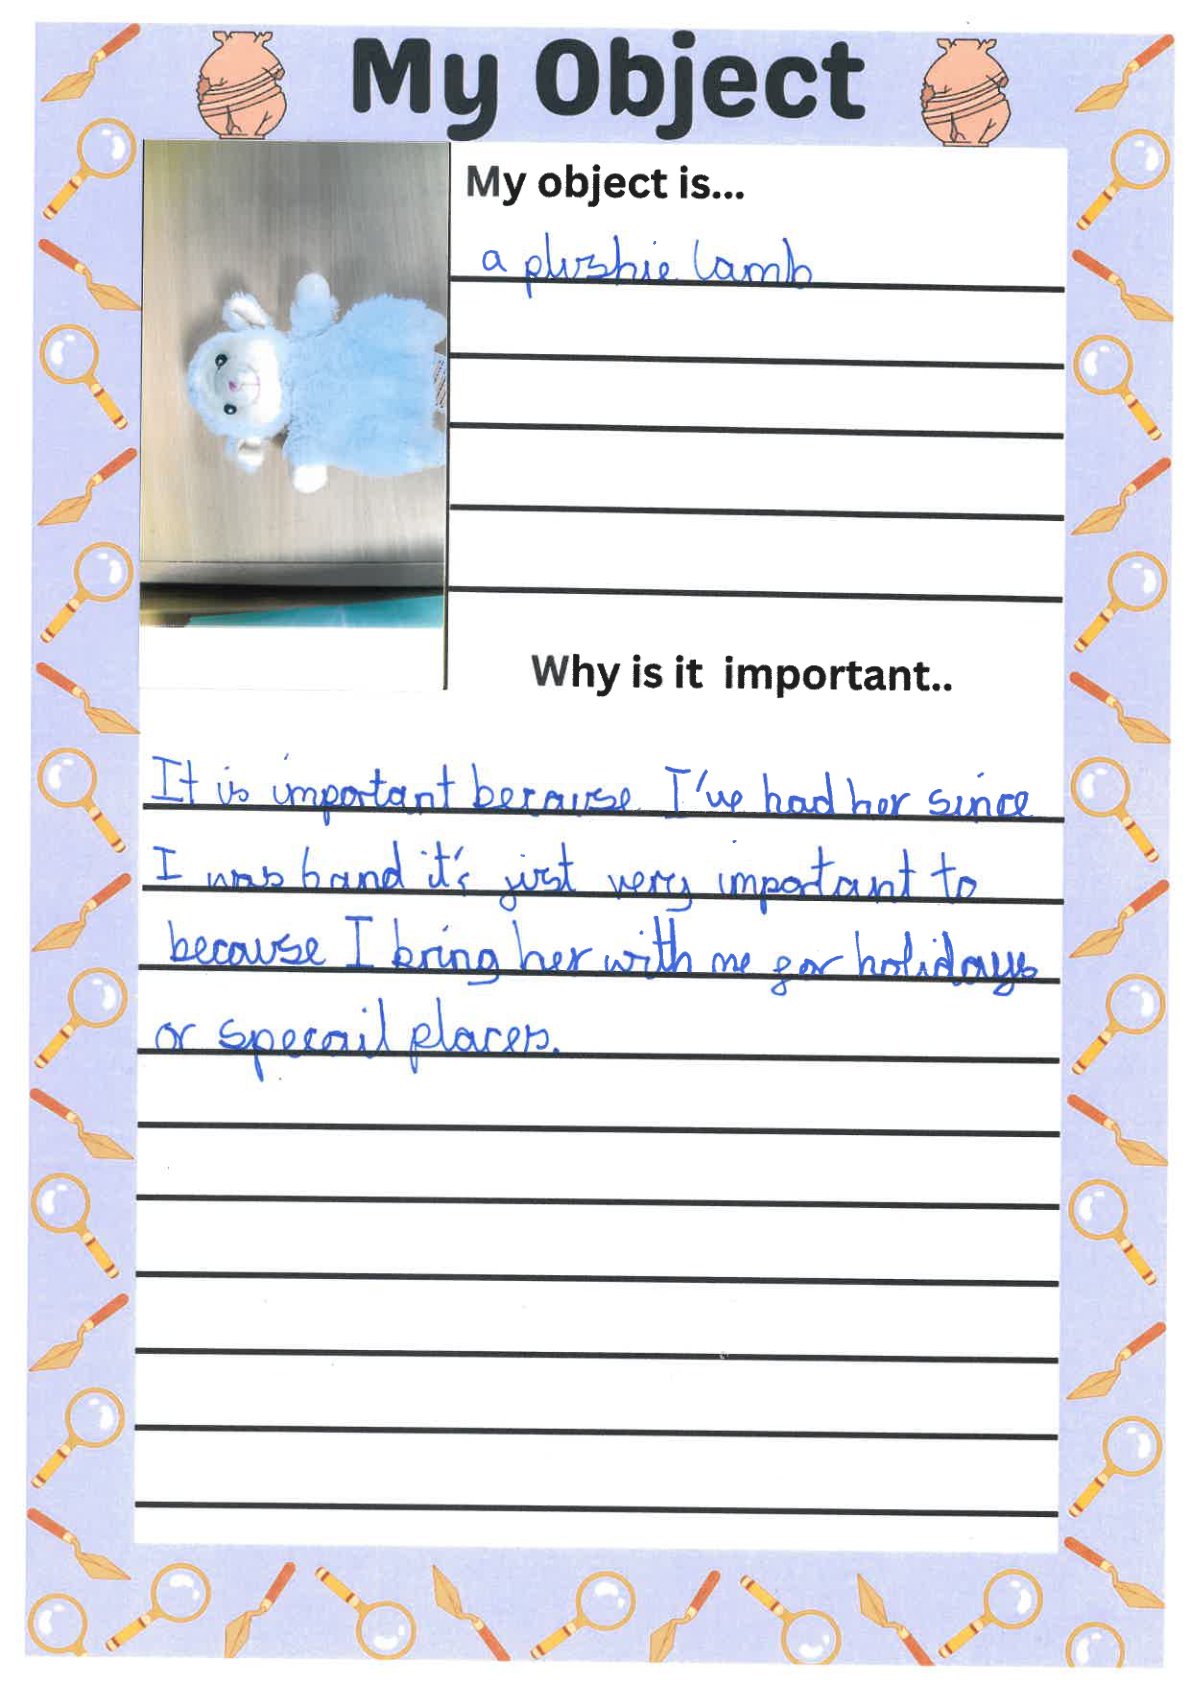 My Object
My object is...
a plushie lamb
Why is it important..
It is important because I've had her since
I was 6 and it's just very important to
because I bring her with me for holidays
or specail places.